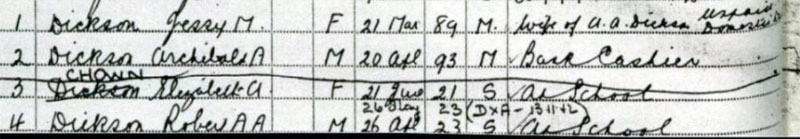 1 Dickson Jessy M. F 21 Mar 89 M. Wife of A. A. Dickson Unpaid Domestic
2 Dickson Archibald A M 20 Apl 93 M Bank Cashier
CHOWN
3 Dickson Elizabeth A. F 21 June 21 S At School
26 May 23 (DXA - 13.11.42)
4 Dickson Robert A A M 26 Apl 23 S At School